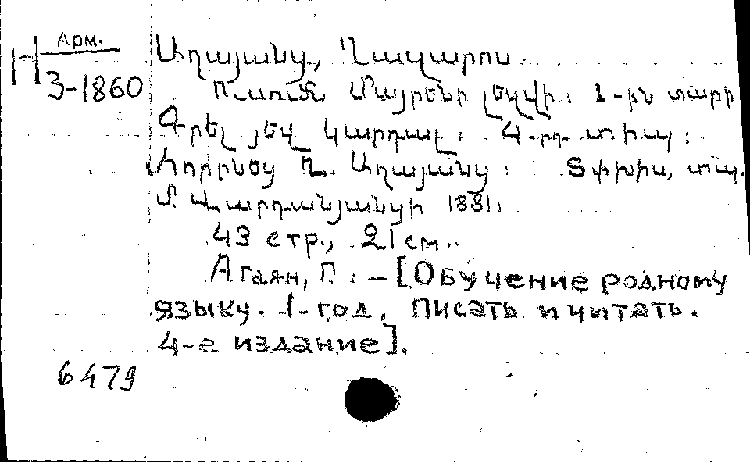 Арм.
Н З-1860
Աղայանց, Ղազարոս
Ուսումն Մայրենի լեզվի: 1-ին տարի
Գրել յեվ կարդալ: 4-րդ տիպ:
Հորինեց Ղ. Աղայանց: Տփխիս, տպ.
Մ. Վարդանյանցի 1881:
43 стр., 21 см.
Агаян, Г. : – [Обучение родному
языку. 1-год, писать и читать.
4-е издание].
6479